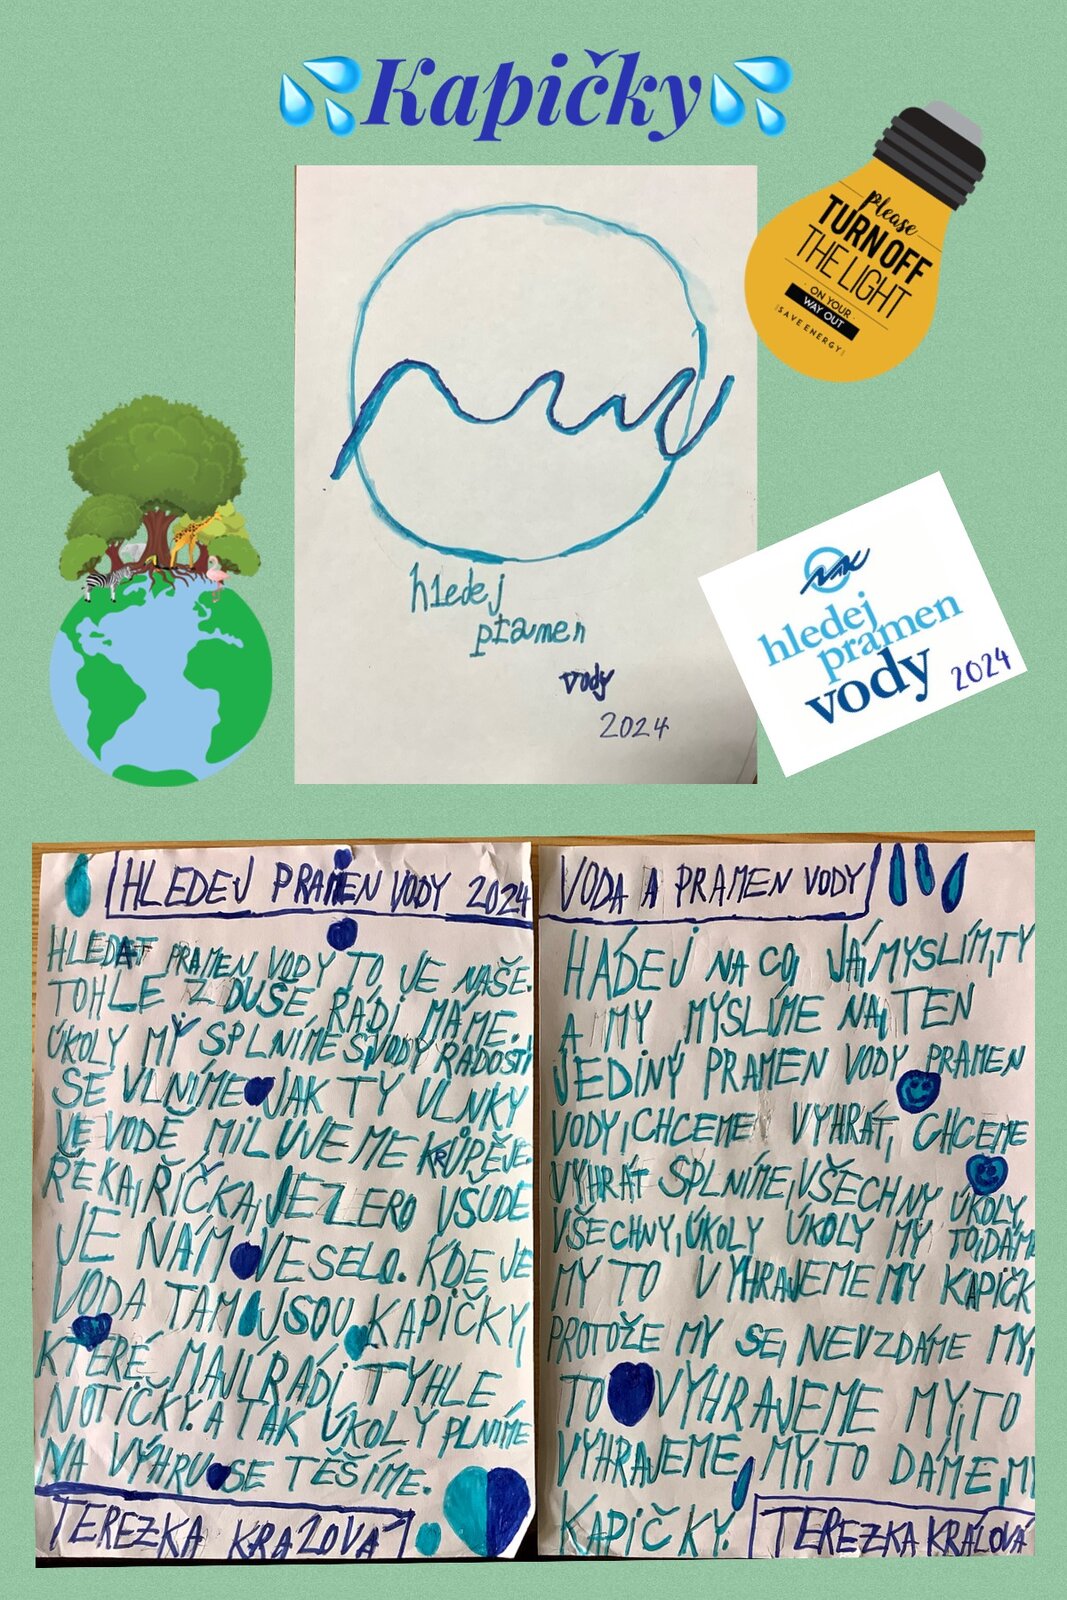 Kapičky
please
TURN OFF
THE LIGHT
ON YOUR
WAY OUT
SAVE ENERGY
hledej
pramen
vody
2024
NAK
hledej
pramen
vody 2024
HLEDEJ PRAMEN VODY 2024
HLEDAT PRAMEN VODY TO, JE NAŠE.
TOHLE Z DUŠE RÁDI MÁME.
ÚKOLY MY SPLNÍME S VODY RADOSTÍ
SE VLNÍME JAK TY VLNKY
VE VODĚ, MILUJEME KRŮPĚJE.
ŘEKA, ŘÍČKA, JEZERO VŠUDE
JE NÁM VESELO. KDE JE
VODA TAM JSOU KAPIČKY,
KTERÉ MAJÍ RÁDI TYHLE
NOTIČKY. A TAK ÚKOLY PLNÍME
NA VÝHRU SE TĚŠÍME.
TEREZKA KRÁLOVÁ
VODA A PRAMEN VODY
HÁDEJ NA CO, JÁ, MYSLÍM, TY
A MY MYSLÍME NA, TEN
JEDINÝ PRAMEN VODY PRAMEN
VODY, CHCEME VYHRÁT, CHCEME
VYHRÁT SPLNÍME, VŠECHNY ÚKOLY,
VŠECHNY, ÚKOLY ÚKOLY MY TO, DÁM
MY TO VYHRAJEME MY KAPIČK
PROTOŽE MY SE, NEVZDÁME MY,
TO VYHRAJEME MY, TO
VYHRAJEME, MY, TO DÁME, MY
KAPIČKY. TEREZKA KRÁLOVÁ